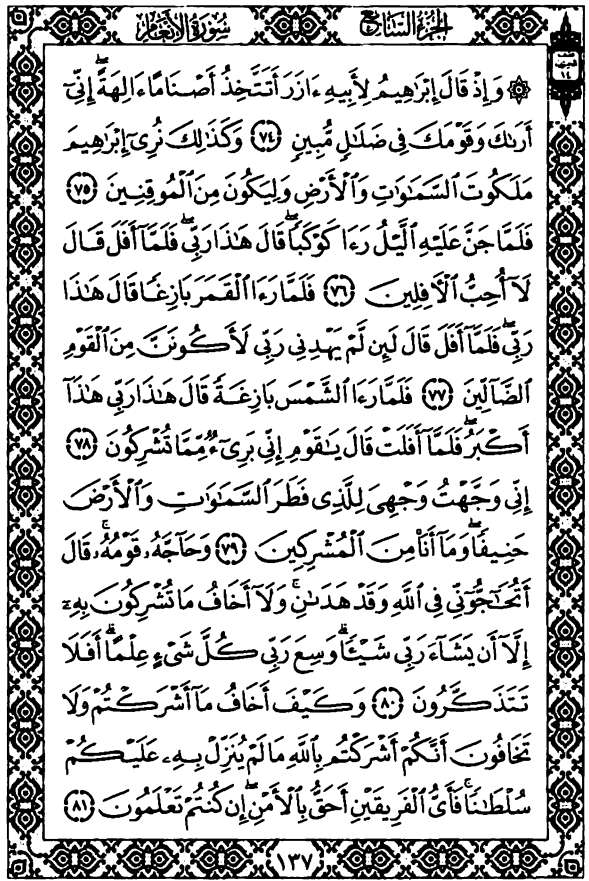 سورة الأنعام
الجزء السابع
۞ وَإِذْ قَالَ إِبْرَٰهِيمُ لِأَبِيهِ ءَازَرَ أَتَتَّخِذُ أَصْنَامًا ءَالِهَةً ۖ إِنِّىٓ
أَرَىٰكَ وَقَوْمَكَ فِى ضَلَٰلٍ مُّبِينٍ ﴿٧٤﴾ وَكَذَٰلِكَ نُرِىٓ إِبْرَٰهِيمَ
مَلَكُوتَ ٱلسَّمَٰوَٰتِ وَٱلْأَرْضِ وَلِيَكُونَ مِنَ ٱلْمُوقِنِينَ ﴿٧٥﴾
فَلَمَّا جَنَّ عَلَيْهِ ٱلَّيْلُ رَءَا كَوْكَبًا ۖ قَالَ هَٰذَا رَبِّى ۖ فَلَمَّآ أَفَلَ قَالَ
لَآ أُحِبُّ ٱلْءَافِلِينَ ﴿٧٦﴾ فَلَمَّا رَءَا ٱلْقَمَرَ بَازِغًا قَالَ هَٰذَا
رَبِّى ۖ فَلَمَّآ أَفَلَ قَالَ لَئِن لَّمْ يَهْدِنِى رَبِّى لَأَكُونَنَّ مِنَ ٱلْقَوْمِ
ٱلضَّآلِّينَ ﴿٧٧﴾ فَلَمَّا رَءَا ٱلشَّمْسَ بَازِغَةً قَالَ هَٰذَا رَبِّى هَٰذَآ
أَكْبَرُ ۖ فَلَمَّآ أَفَلَتْ قَالَ يَٰقَوْمِ إِنِّى بَرِىٓءٌ مِّمَّا تُشْرِكُونَ ﴿٧٨﴾
إِنِّى وَجَّهْتُ وَجْهِىَ لِلَّذِى فَطَرَ ٱلسَّمَٰوَٰتِ وَٱلْأَرْضَ
حَنِيفًا ۖ وَمَآ أَنَا۠ مِنَ ٱلْمُشْرِكِينَ ﴿٧٩﴾ وَحَآجَّهُۥ قَوْمُهُۥ ۚ قَالَ
أَتُحَٰٓجُّوٓنِّى فِى ٱللَّهِ وَقَدْ هَدَىٰنِ ۚ وَلَآ أَخَافُ مَا تُشْرِكُونَ بِهِۦٓ
إِلَّآ أَن يَشَآءَ رَبِّى شَيْـًٔا ۗ وَسِعَ رَبِّى كُلَّ شَىْءٍ عِلْمًا ۗ أَفَلَا
تَتَذَكَّرُونَ ﴿٨٠﴾ وَكَيْفَ أَخَافُ مَآ أَشْرَكْتُمْ وَلَا
تَخَافُونَ أَنَّكُمْ أَشْرَكْتُم بِٱللَّهِ مَا لَمْ يُنَزِّلْ بِهِۦ عَلَيْكُمْ
سُلْطَٰنًا ۚ فَأَىُّ ٱلْفَرِيقَيْنِ أَحَقُّ بِٱلْأَمْنِ ۖ إِن كُنتُمْ تَعْلَمُونَ ﴿٨١﴾
١٣٧